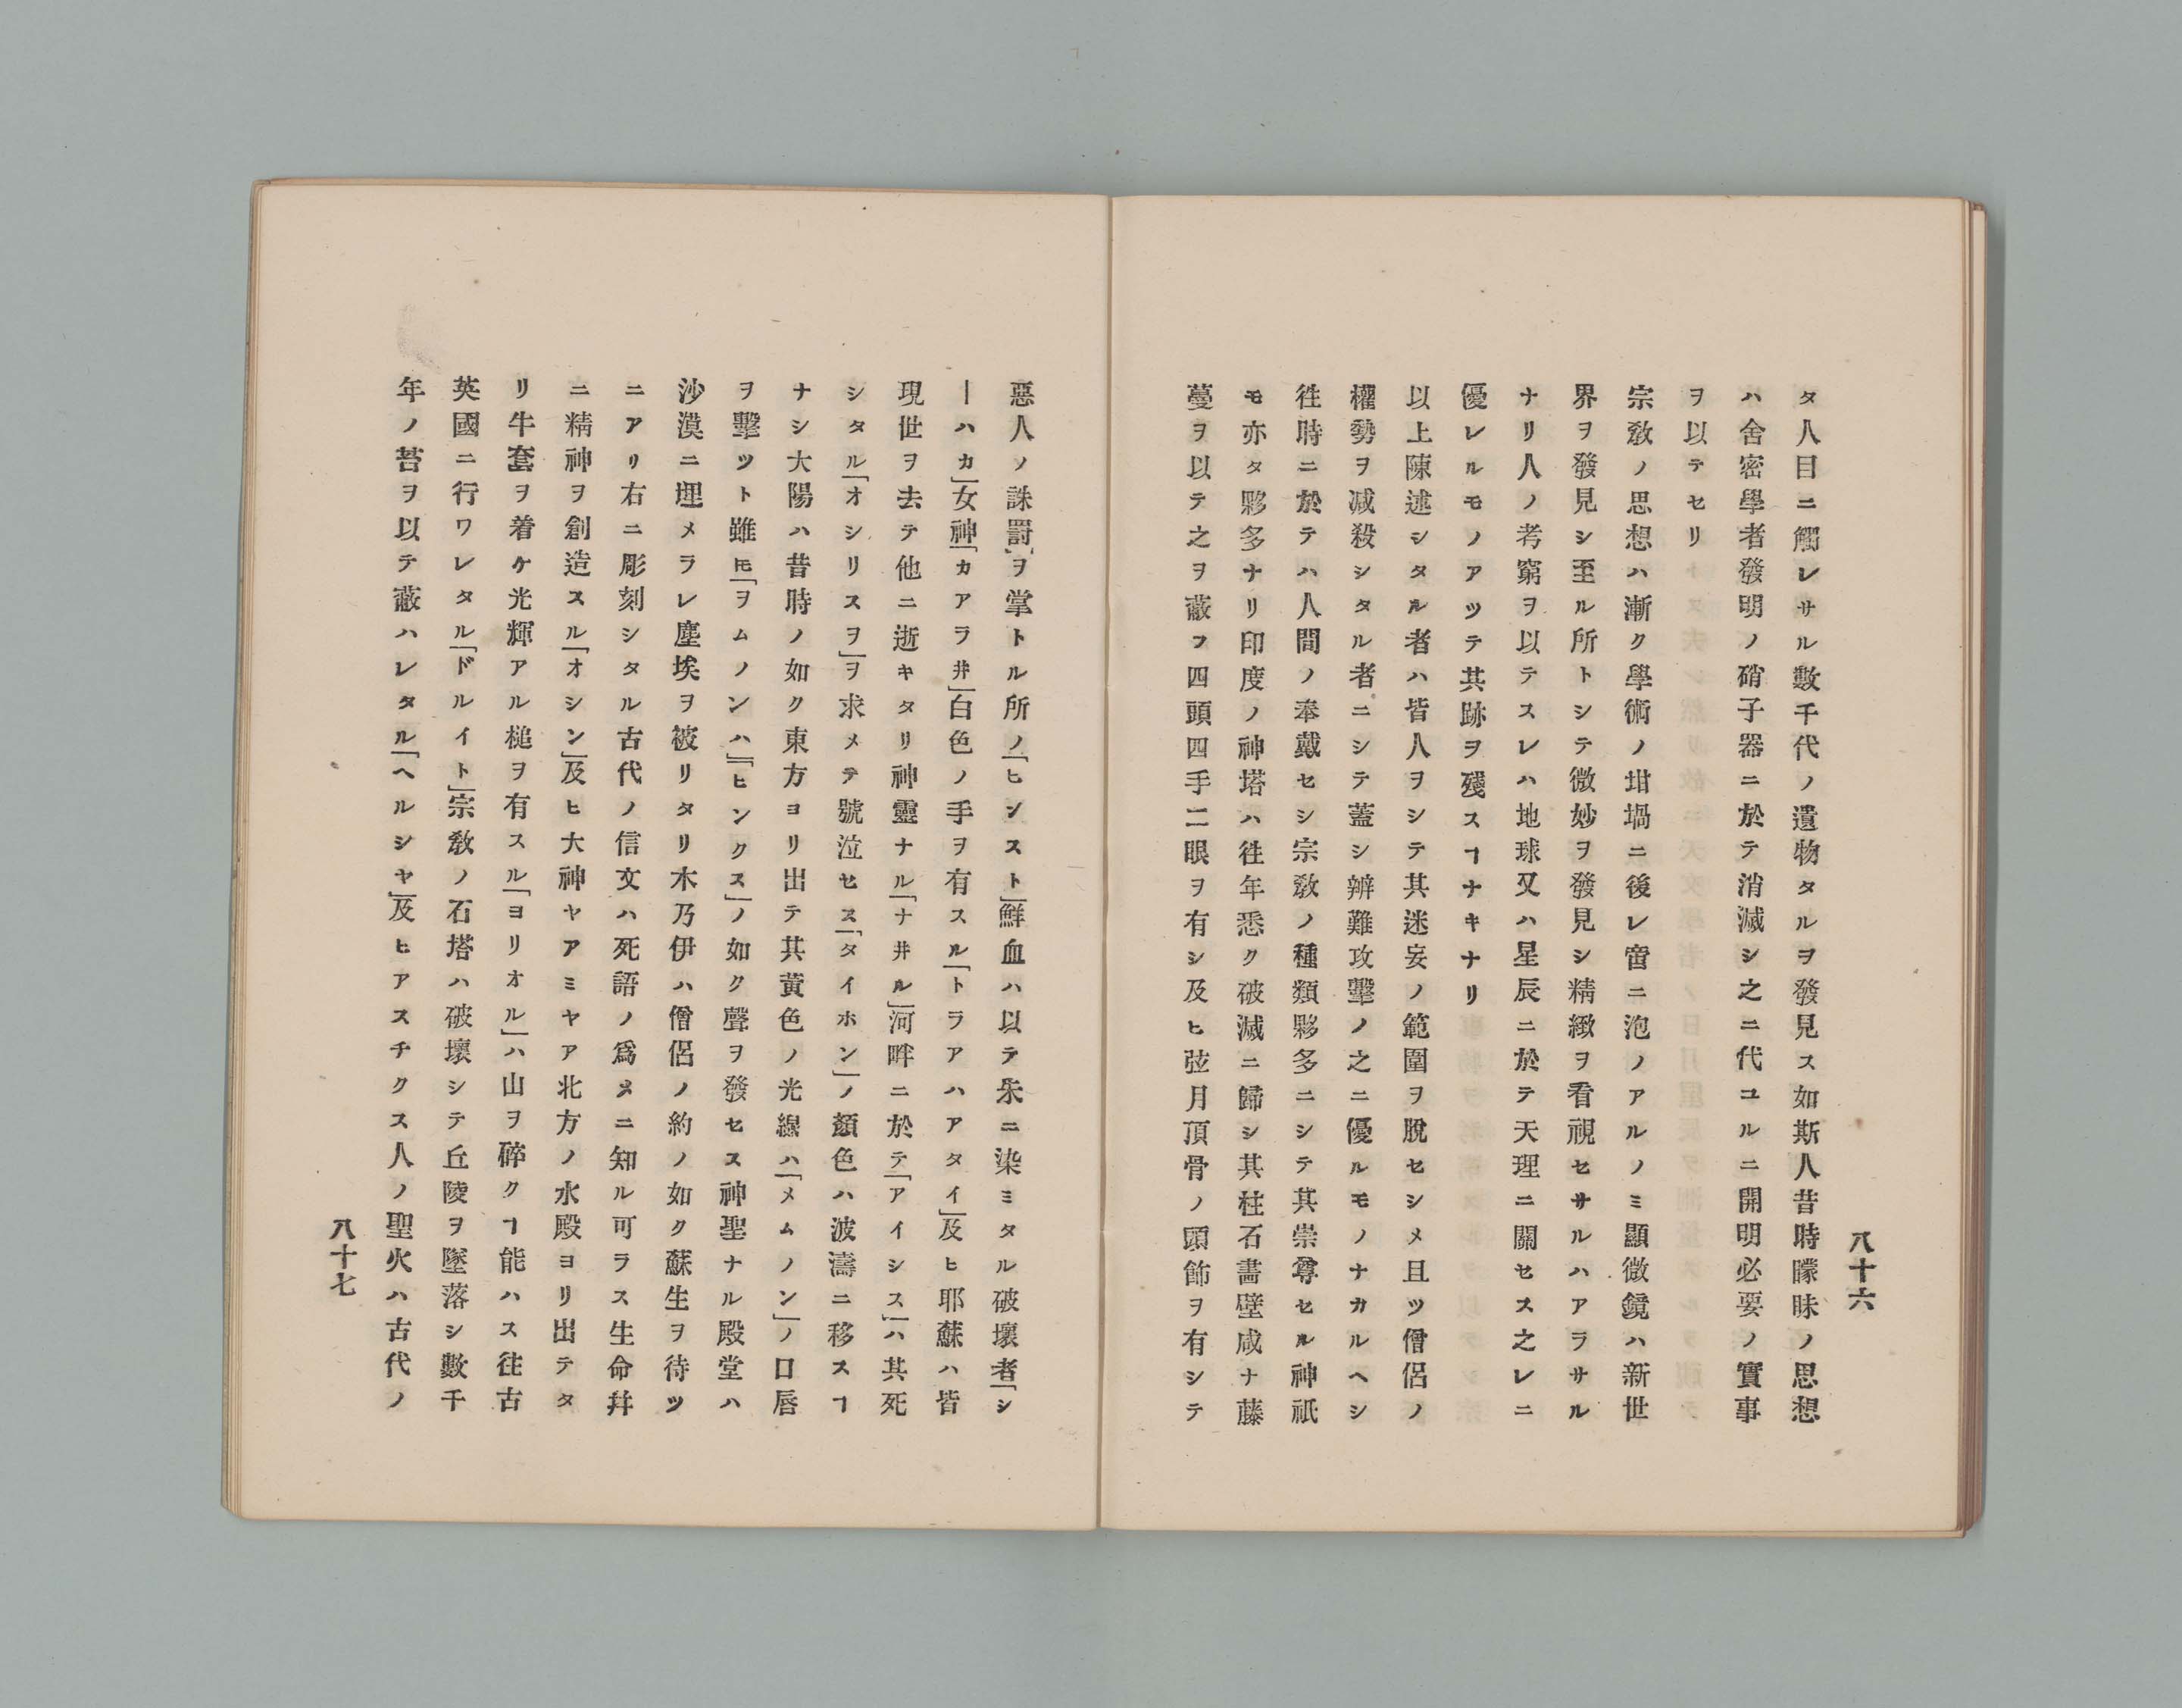 八十六
タ人目ニ觸レサル數千代ノ遺物タルヲ發見ス如斯人昔時矇昧ノ思想
ハ舍密學者發明ノ硝子器ニ於テ消滅シ之ニ代ユルニ開明必要ノ實事
ヲ以テセリ
宗敎ノ思想ハ漸ク學術ノ坩堝ニ後レ啻ニ泡ノアルノミ顯微鏡ハ新世
界ヲ發見シ至ル所トシテ微妙ヲ發見シ精緻ヲ看視セサルハアラサル
ナリ人ノ考窮ヲ以テスレハ地球又ハ星辰ニ於テ天理ニ關セス之レニ
優レルモノアツテ其跡ヲ殘スヿナキナリ
以上陳述シタル者ハ皆人ヲシテ其迷妄ノ範圍ヲ脫セシメ且ツ僧侶ノ
權勢ヲ减殺シタル者ニシテ蓋シ辨難攻擊ノ之ニ優ルモノナカルヘシ
徃時ニ於テハ人間ノ奉戴セシ宗敎ノ種類夥多ニシテ其崇尊セル神祇
モ亦タ夥多ナリ印度ノ神塔ハ徃年悉ク破滅ニ歸シ其柱石畵壁咸ナ藤
蔓ヲ以テ之ヲ蔽フ四頭四手二眼ヲ有シ及ヒ弦月頂骨ノ頭飾ヲ有シテ
惡人ノ誅罰ヲ掌トル所ノ「ヒンスト」鮮血ハ以テ朱ニ染ミタル破壞者「シ
ーハカ」女神「カアラ井」白色ノ手ヲ有スル「トラアハアタイ」及ヒ耶蘇ハ皆
現世ヲ去テ他ニ逝キタリ神靈ナル「ナ井ル」河畔ニ於テ「アイシス」ハ其死
シタル「オシリスヲ」ヲ求メテ號泣セス「タイホン」ノ顏色ハ波濤ニ移スヿ
ナシ大陽ハ昔時ノ如ク東方ヨリ出テ其黃色ノ光線ハ「メムノン」ノ口唇
ヲ擊ツト雖ㅌ「ヲムノンハ」「ヒンクス」ノ如ク聲ヲ發セス神聖ナル殿堂ハ
沙漠ニ埋メラレ塵埃ヲ被リタリ木乃伊ハ僧侶ノ約ノ如ク蘇生ヲ待ツ
ニアリ右ニ彫刻シタル古代ノ信文ハ死語ノ爲メニ知ル可ラス生命幷
ニ精神ヲ創造スル「オシン」及ヒ大神ヤアミヤア北方ノ水殿ヨリ出テタ
リ牛套ヲ着ケ光輝アル槌ヲ有スル「ヨリオル」ハ山ヲ碎クヿ能ハス徃古
英國ニ行ワレタル「ドルイト」宗敎ノ石塔ハ破壞シテ丘陵ヲ墜落シ數千
年ノ苔ヲ以テ蔽ハレタル「ヘルシヤ」及ヒアスチクス人ノ聖火ハ古代ノ
八十七